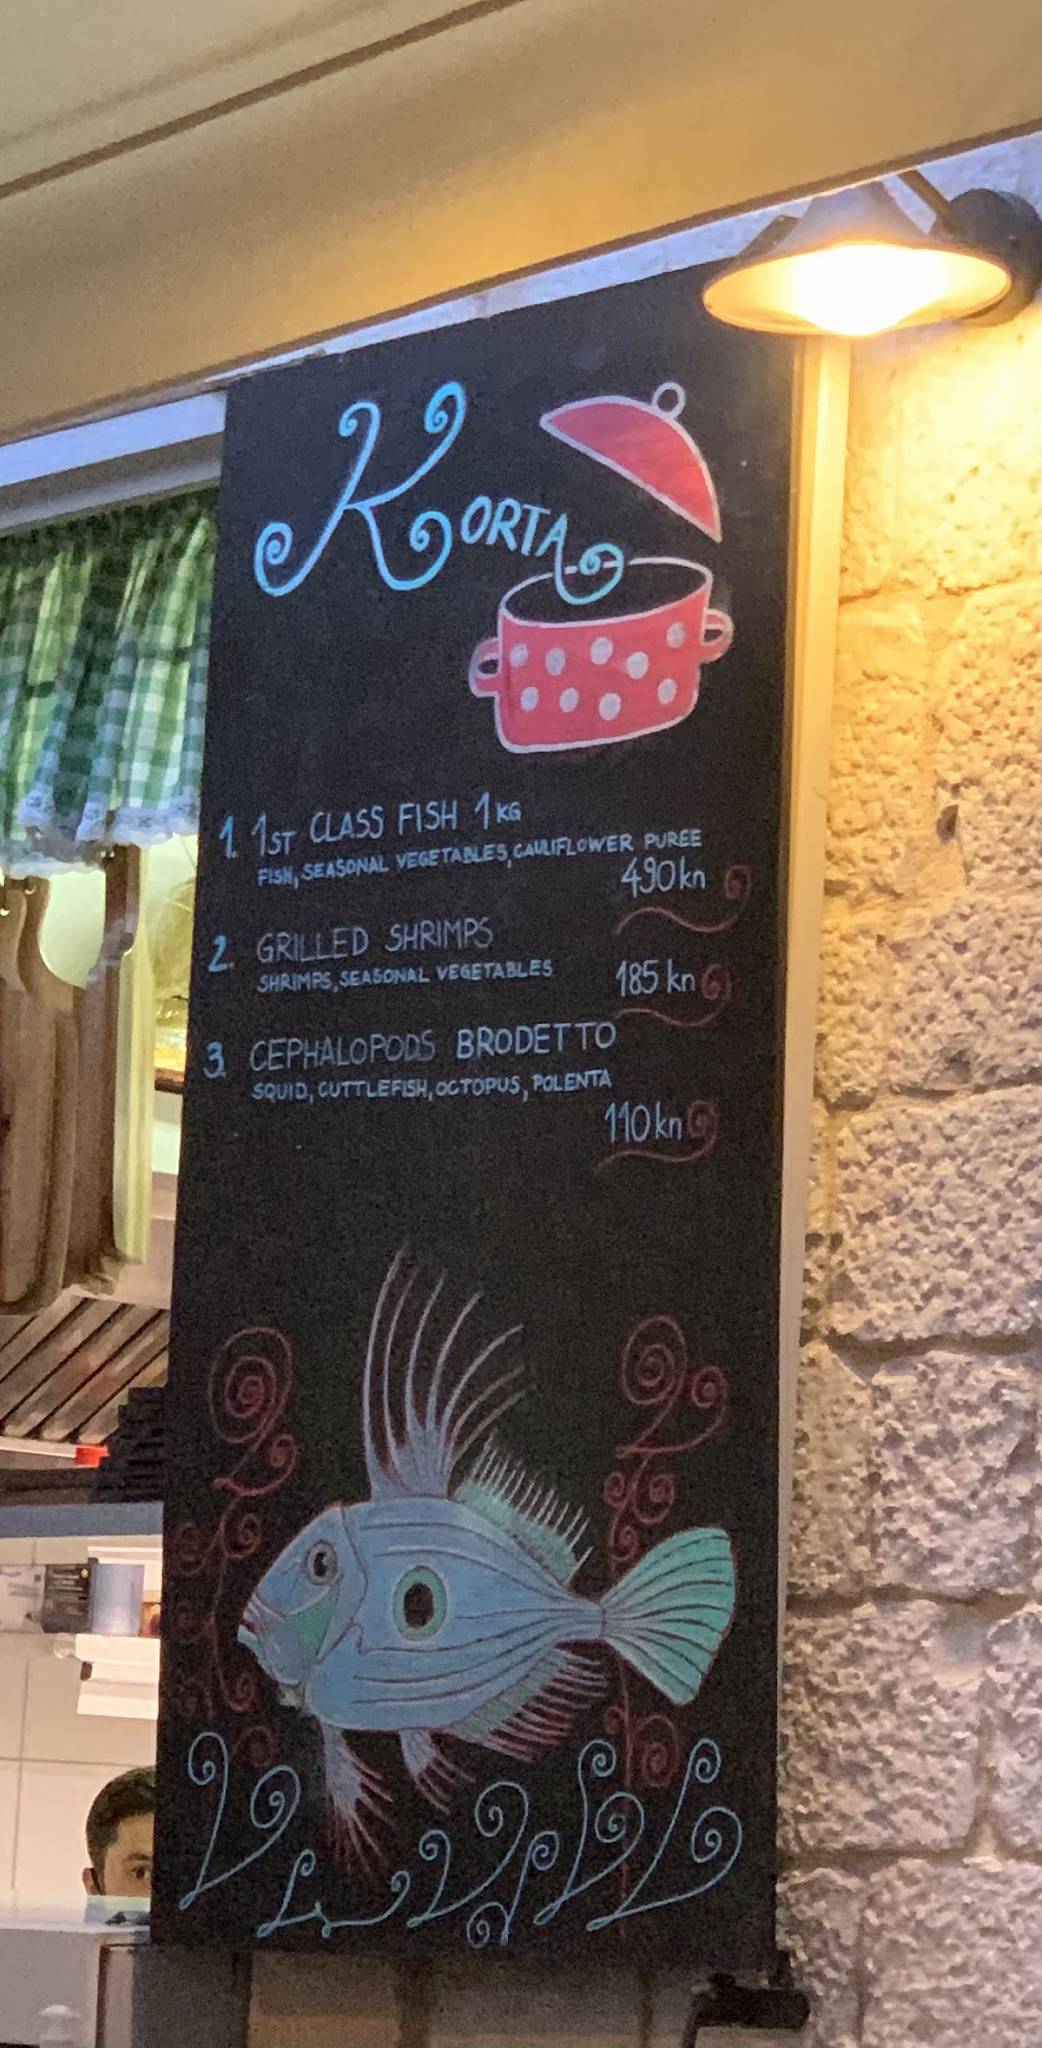 KORTA
1. 1ST CLASS FISH 1KG
FISH, SEASONAL VEGETABLES, CAULIFLOWER PUREE
490kn
2. GRILLED SHRIMPS
SHRIMPS, SEASONAL VEGETABLES
185 kn
3. CEPHALOPODS BRODETTO
SQUID, CUTTLEFISH, OCTOPUS, POLENTA
110kn